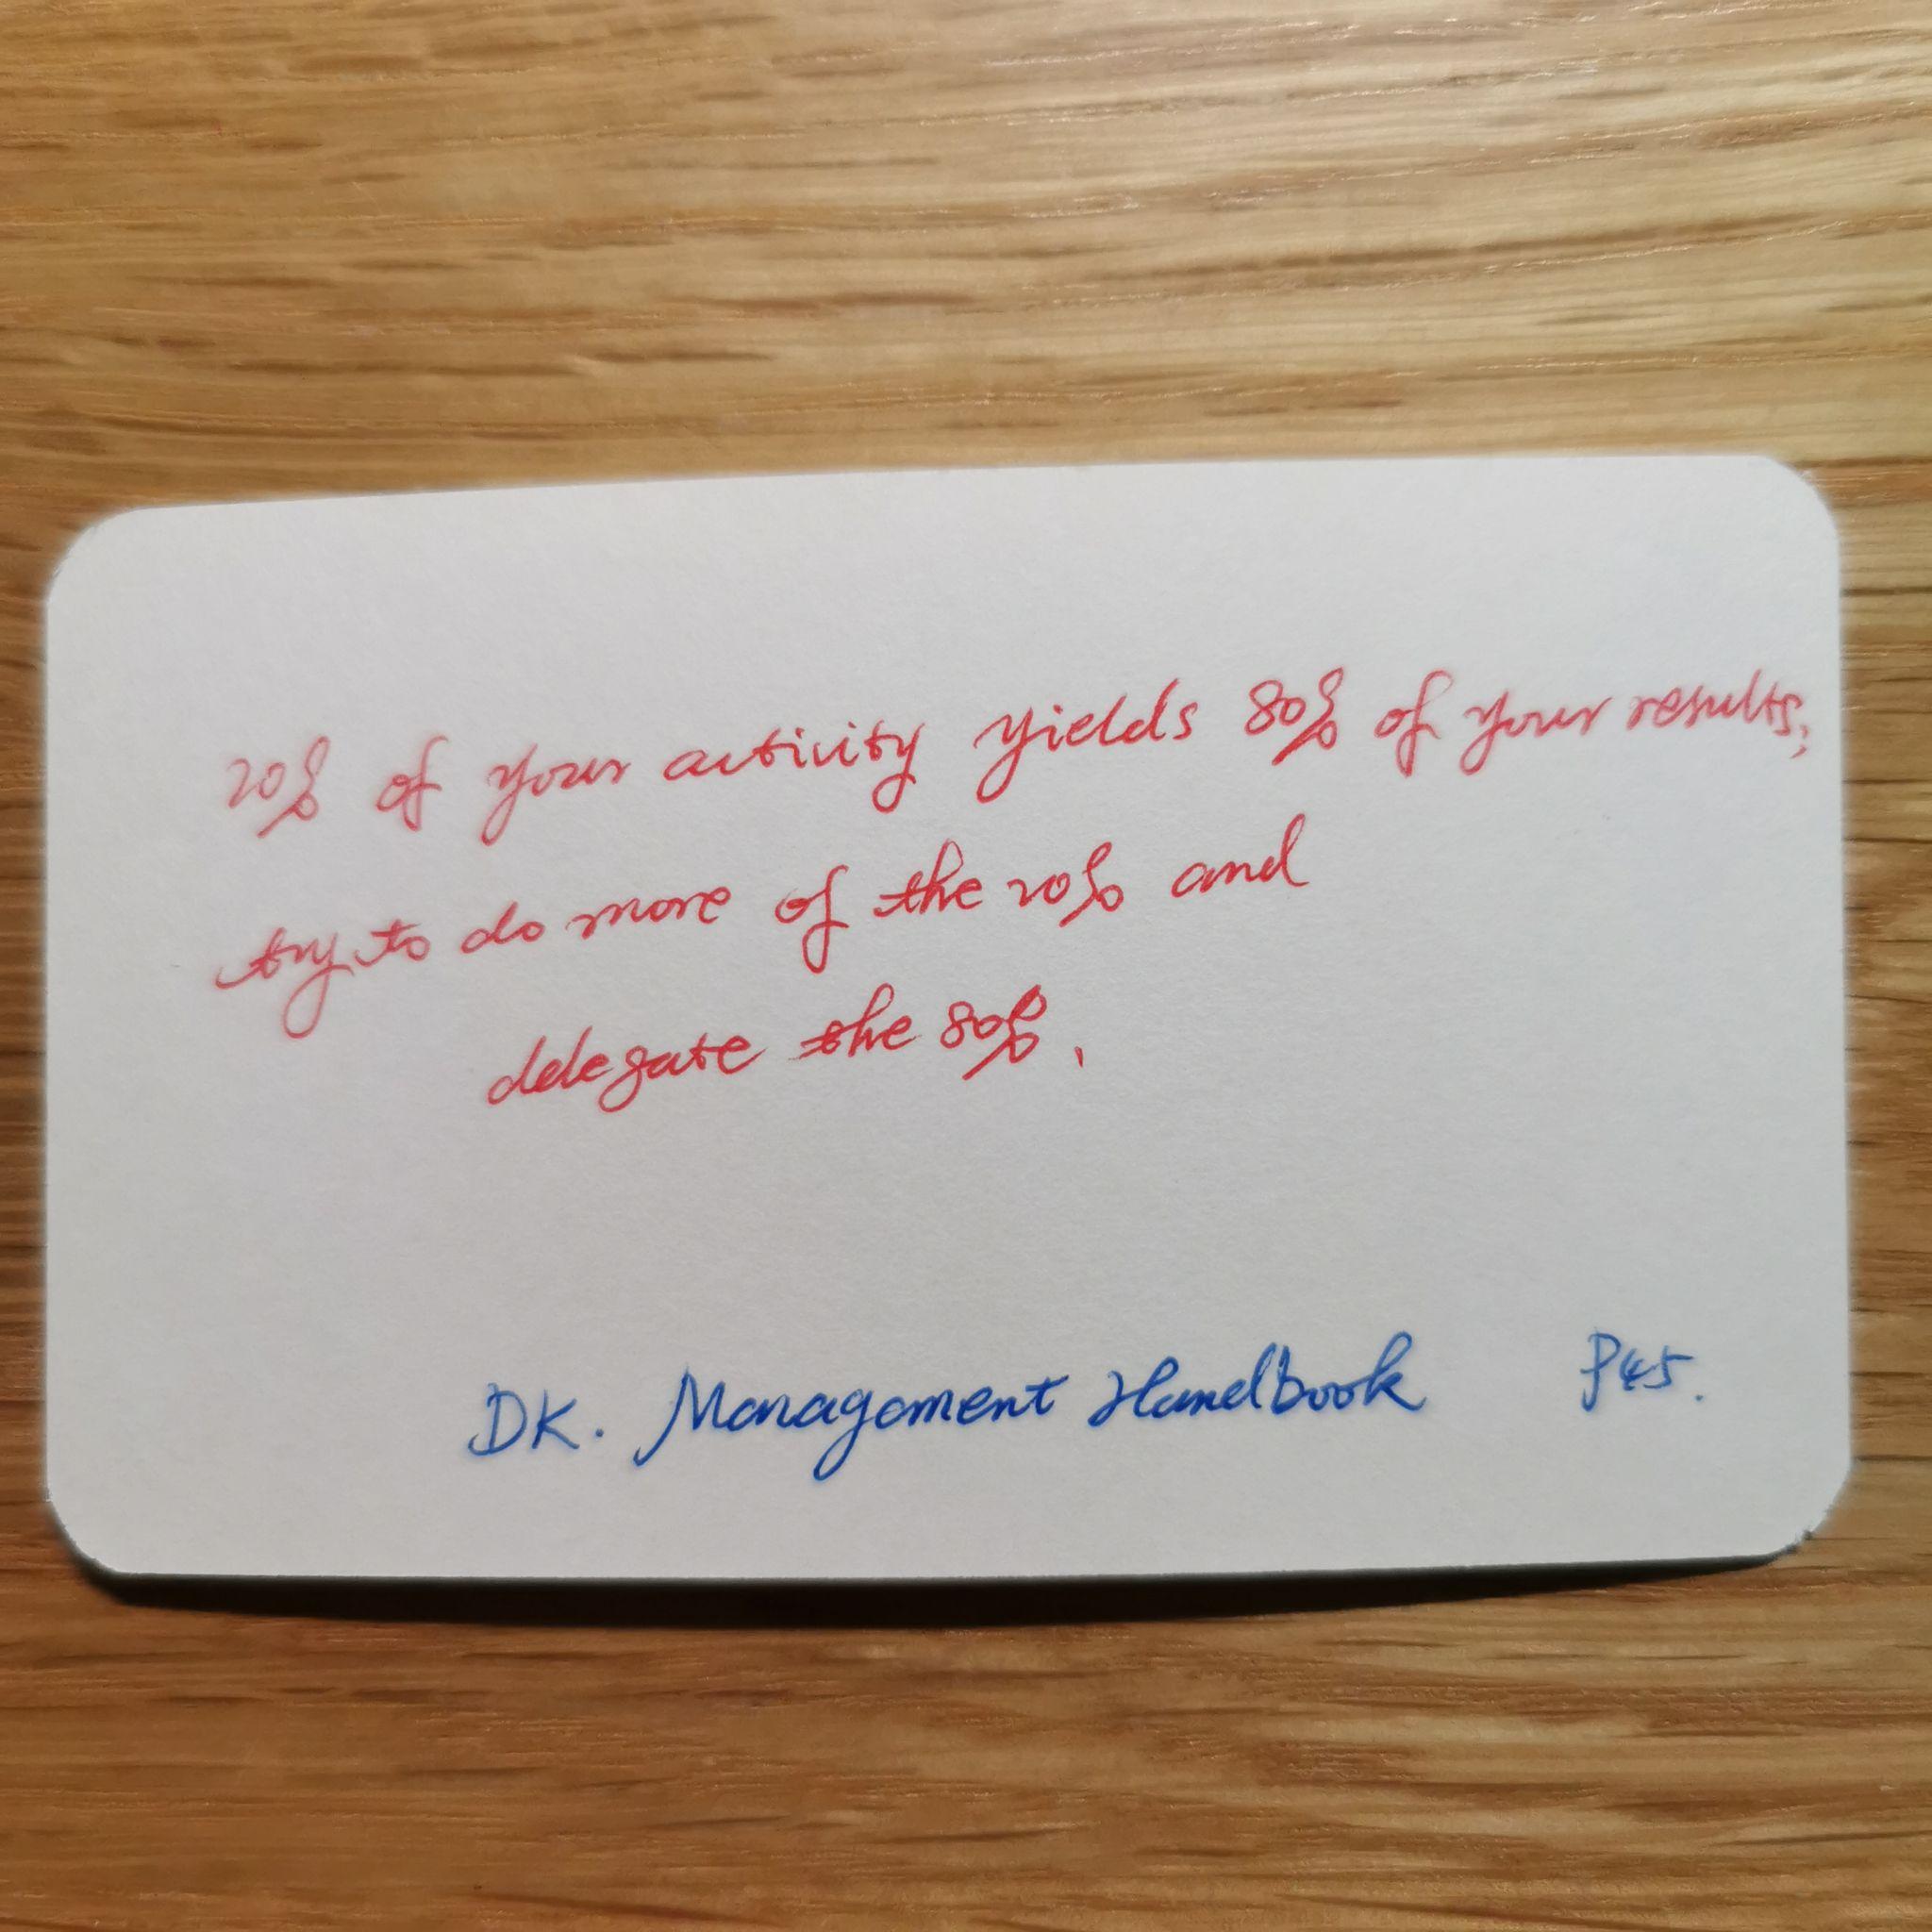 20% of your activity yields 80% of your results;
try to do more of the 20% and
delegate the 80%.
DK. Management Handbook P45.